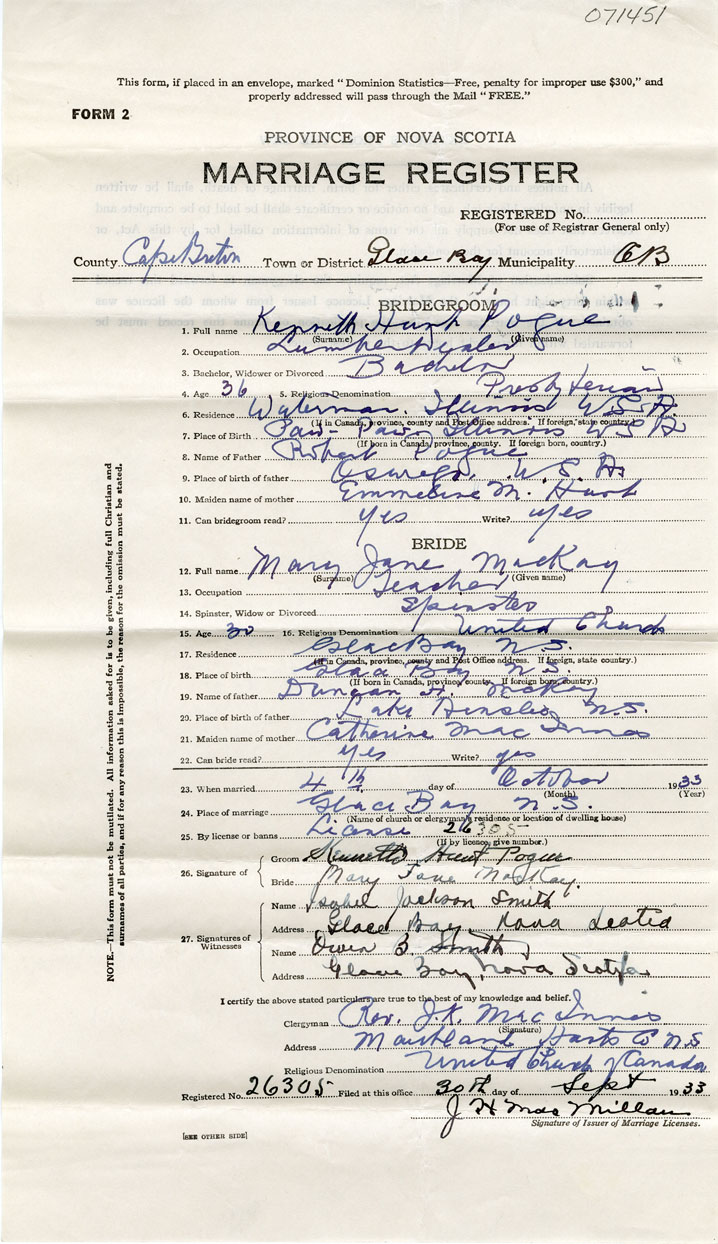 071451
This form, if placed in an envelope, marked "Dominion Statistics—Free, penalty for improper use $300," and
properly addressed will pass through the Mail "FREE."
FORM 2
PROVINCE OF NOVA SCOTIA
MARRIAGE REGISTER
REGISTERED No.
(For use of Registrar General only)
County Cape Breton Town or District Glace Bay Municipality CB
BRIDEGROOM
1. Full name Kenneth Hunt Pogue
(Surname) (Given name)
2. Occupation Lumber Dealer
3. Bachelor, Widower or Divorced Bachelor
4. Age 36 5. Religious Denomination Presbyterian
6. Residence Waterman, Illinois U.S.A.
(If in Canada, province, county and Post Office address. If foreign, state country.)
7. Place of Birth Paw-Paw, Illinois U.S.A.
(If born in Canada, province, county. If foreign born, country.)
8. Name of Father Robert Pogue
9. Place of birth of father Oswego, U.S.A.
10. Maiden name of mother Emmeline M. Hunt
11. Can bridegroom read? Yes Write? Yes
BRIDE
12. Full name Mary Jane MacKay
(Surname) (Given name)
13. Occupation Teacher
14. Spinster, Widow or Divorced Spinster
15. Age 30 16. Religious Denomination United Church
17. Residence Glace Bay N.S.
(If in Canada, province, county and Post Office address. If foreign, state country.)
18. Place of birth Glace Bay N.S.
(If born in Canada, province, county. If foreign born, country.)
19. Name of father Duncan McKay
20. Place of birth of father Lake Ainslie N.S.
21. Maiden name of mother Catherine MacInnes
22. Can bride read? Yes Write? yes
23. When married 4th day of October 1933
(Month) (Year)
24. Place of marriage Glace Bay N.S.
(Name of church or clergyman's residence or location of dwelling house)
25. By license or banns License 26305
(If by licence, give number.)
26. Signature of
Groom Kenneth Hunt Pogue
Bride Mary Jane MacKay.
27. Signatures of Witnesses
Name Isabel Jackson Smith
Address Glace Bay, Nova Scotia
Name Owen B. Smith
Address Glace Bay, Nova Scotia
I certify the above stated particulars are true to the best of my knowledge and belief.
Clergyman Rev. J.K. MacInnes
(Signature)
Address Maitland Hants Co N.S.
Religious Denomination United Church of Canada
Registered No. 26305 Filed at this office 30th day of Sept 1933
J H MacMillan
Signature of Issuer of Marriage Licenses.
[SEE OTHER SIDE]
NOTE.—This form must not be mutilated. All information asked for is to be given, including full Christian and
surnames of all parties, and if for any reason this is impossible, the reason for the omission must be stated.